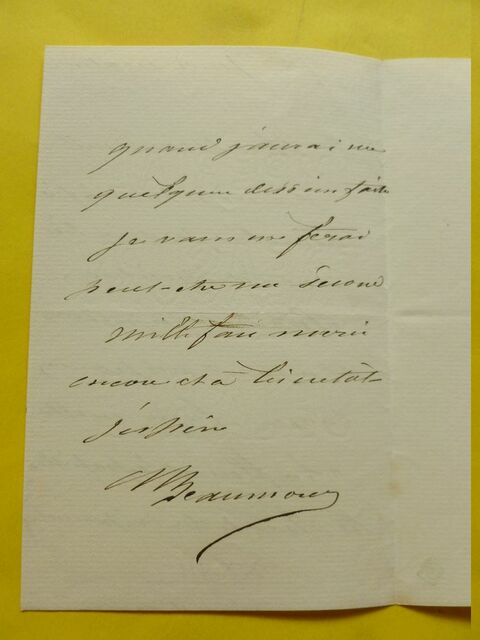 quand j'aurai vu
quelques dessins faits
je vous en ferai
peut-être un second
mille fois merci
encore et à bientôt
j'espère
Beaumont